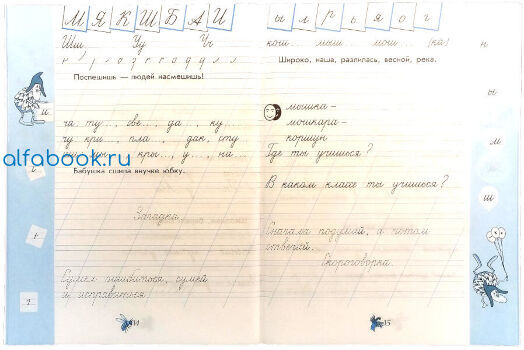 М Я К Ш Б А И
Шш Уу Чч
Поспешишь — людей насмешишь!
и
ча ту..., зве..., да..., ку...
чу кри..., пла..., дак, сту
кры..., у..., на...
alfabook.ru
Бабушка сшила внучке юбку.
Загадка
Сумел ошибиться, сумей
и исправиться
14
ы л р ь я о г
кош... мыш... мош... (ка) н
Широко, наша, разлилась, весной, река.
ы
мошка –
мошкара –
коршун
Где ты учишься?
м
В каком классе ты учишься?
ш
Сначала подумай, а потом
отвечай.
Скороговорка.
15